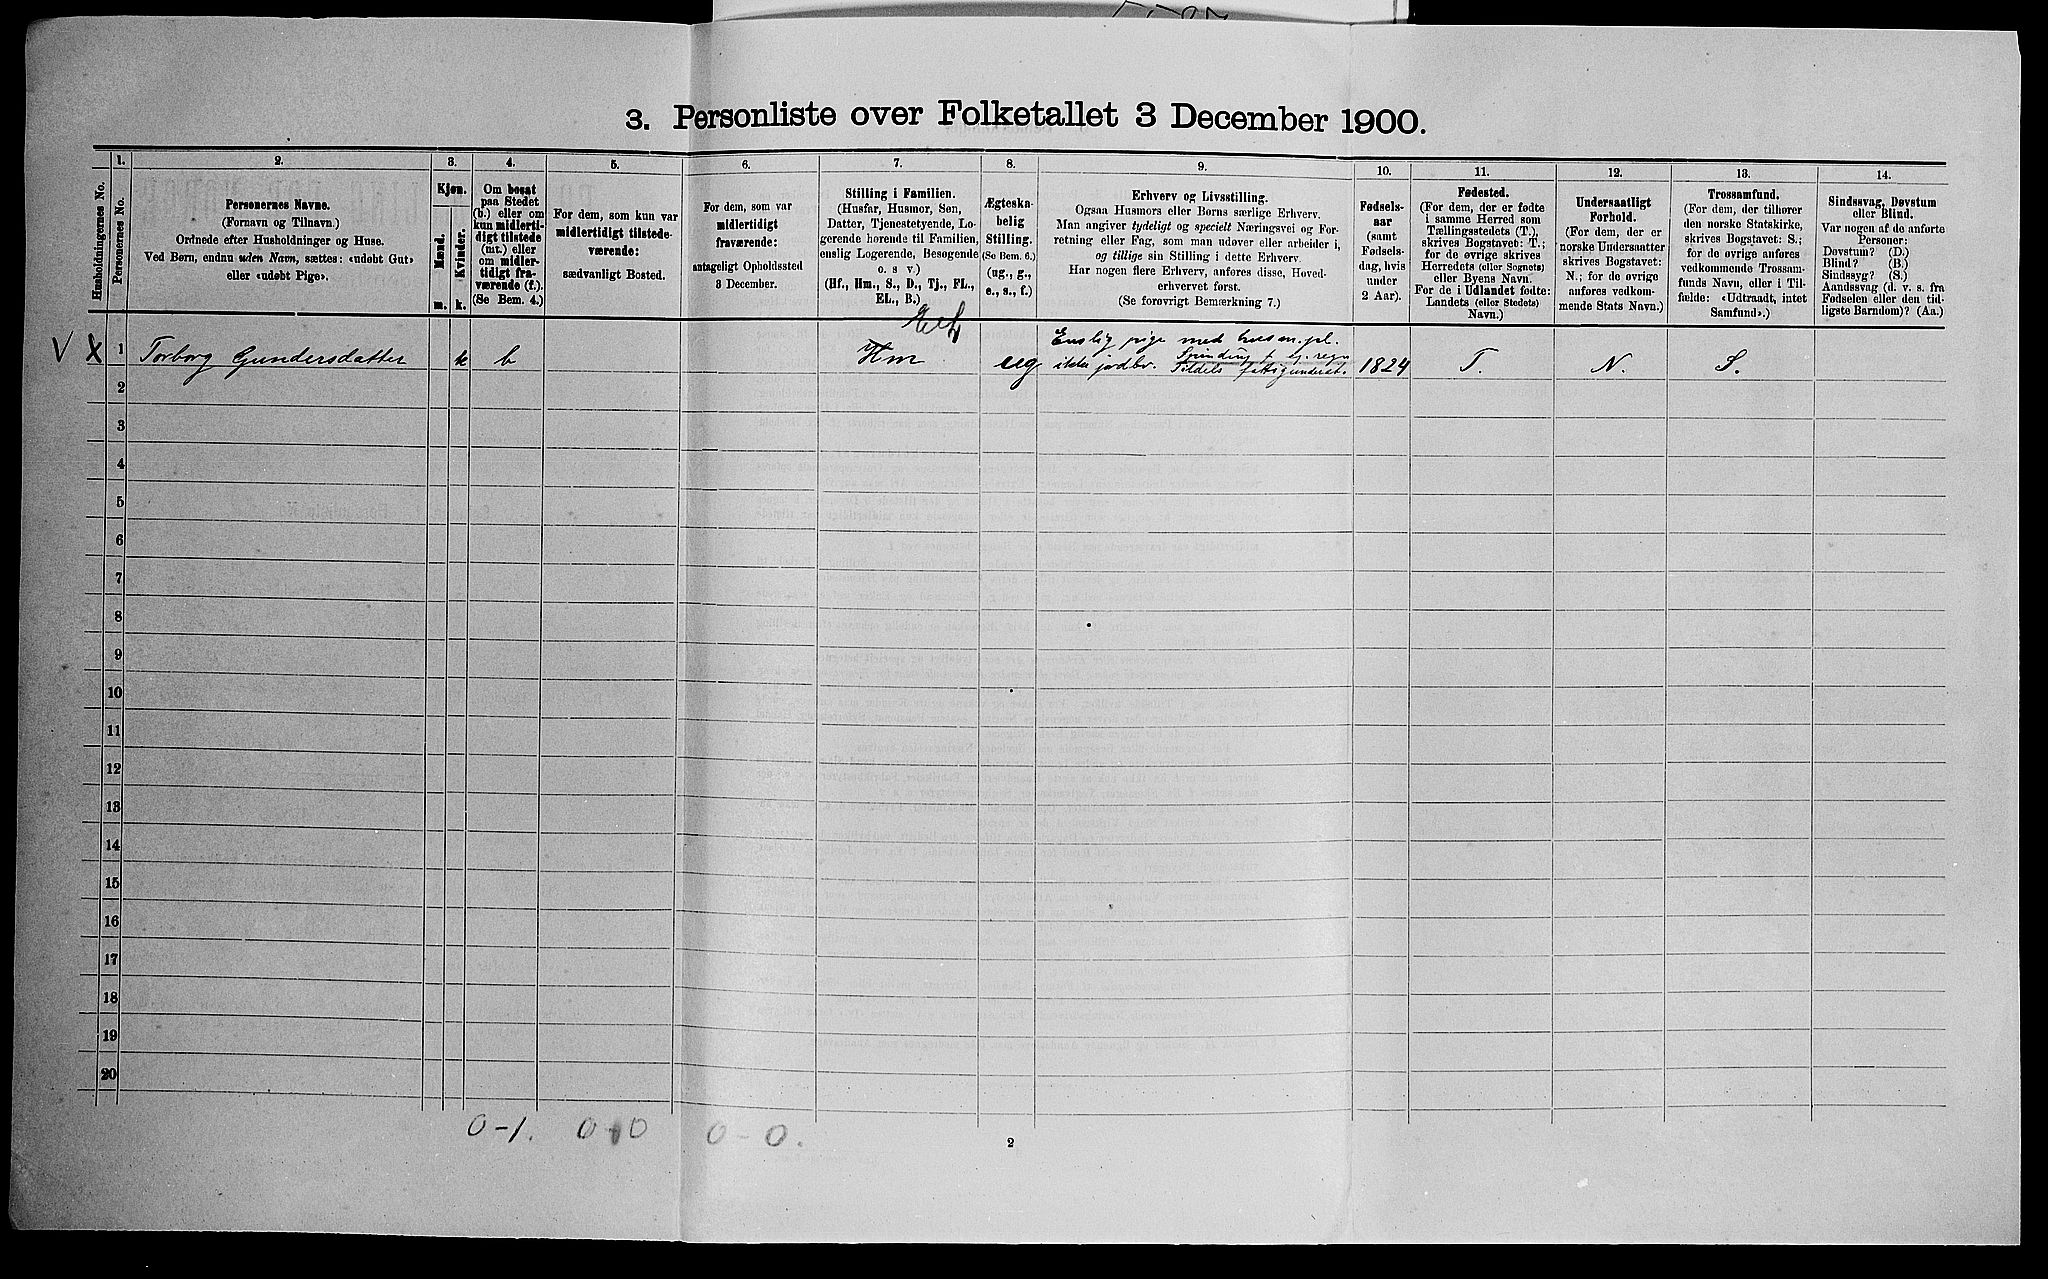 3. Personliste over Folketallet 3 December 1900.
Husholdningernes No.
1.
Personernes No.
2.
Personernes Navne.
(Fornavn og Tilnavn.)
Ordnede efter Husholdninger og Huse.
Ved Børn, endnu uden Navn, sættes: «udøbt Gut»
eller «udøbt Pige».
3.
Kjøn.
Mænd.
Kvinder.
m.
k.
4.
Om bosat
paa Stedet
(b.) eller om
kun midlerti-
digt tilstede
(mt.) eller
om midler-
tidigt fra-
værende (f.).
(Se Bem. 4.)
5.
For dem, som kun var
midlertidigt tilstede-
værende:
sædvanligt Bosted.
6.
For dem, som var
midlertidigt
fraværende:
antageligt Opholdssted
3 December.
7.
Stilling i Familien.
(Husfar, Husmor, Søn,
Datter, Tjenestetyende, Lo-
gerende hørende til Familien,
enslig Logerende, Besøgende
o. s v.)
(Hf., Hm., S., D., Tj., FL.,
EL., B.)
8.
Ægteska-
belig
Stilling.
(Se Bem. 6.)
(ug., g.,
e., s., f.)
9.
Erhverv og Livsstilling.
Ogsaa Husmors eller Børns særlige Erhverv.
Man angiver tydeligt og specielt Næringsvei og For-
retning eller Fag, som man udøver eller arbeider i,
og tillige sin Stilling i dette Erhverv.
Har nogen flere Erhverv, anføres disse, Hoved-
erhvervet først.
(Se forøvrigt Bemærkning 7.)
10.
Fødsels-
aar
(samt
Fødsels-
dag, hvis
under
2 Aar).
11.
Fødested.
(For dem, der er fødte
i samme Herred som
Tællingsstedets (T.),
skrives Bogstavet: T.;
for de øvrige skrives
Herredets (eller Sognets)
eller Byens Navn.
For de i Udlandet fødte:
Landets (eller Stedets)
Navn.)
12.
Undersaatligt
Forhold.
(For dem, der er
norske Undersaatter
skrives Bogstavet:
N.; for de øvrige
anføres vedkom-
mende Stats Navn.)
13.
Trossamfund.
(For dem, der tilhører
den norske Statskirke,
skrives Bogstavet: S.;
for de øvrige anføres
vedkommende Trossam-
funds Navn, eller i Til-
fælde: «Udtraadt, intet
Samfund».)
14.
Sindssvag, Døvstum
eller Blind.
Var nogen af de anførte
Personer:
Døvstum? (D.)
Blind? (B.)
Sindssyg? (S.)
Aandssvag (d. v. s. fra
Fødselen eller den tid-
ligste Barndom)? (Aa.)
V X 1 Torborg Gundersdatter k b Hm ug
Enslig pige med husm. pl.
ikke jordbr.
1824 T. N. S.
2
3
4
5
6
7
8
9
10
11
12
13
14
15
16
17
18
19
20
0-1. 0-0 0-0.
2